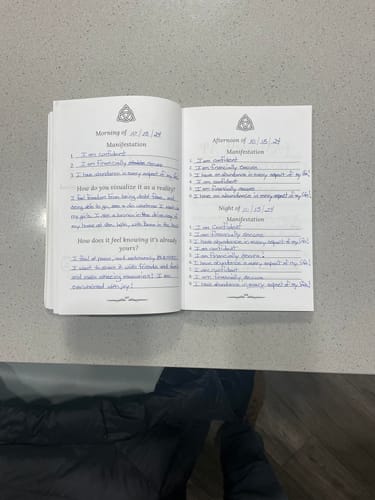 Morning of 10/15/24
Manifestation
1. I am confident
2. I am financially secure
3. I have abundance in every aspect of my life!
How do you visualize it as a reality?
I feel freedom from being debt free, and
being able to go on a
my girls. I see a in the driveway of
my home at the with in the
How does it feel knowing it's already
yours?
I feel at peace, and extremely
I want to share it with friends and
and make amazing memories! I am
overwhelmed with joy!
Afternoon of 10/15/24
Manifestation
1. I am confident
2. I am financially secure
3. I have an abundance in every aspect of my life!
4. I am confident
5. I am financially secure
6. I have an abundance in every aspect of my life!
Night of 10/15/24
Manifestation
1. I am confident
2. I am financially secure
3. I have abundance in every aspect of my life!
4. I am confident
5. I am financially secure.
6. I have abundance in every aspect of my life!
7. I am confident
8. I am financially secure
9. I have abundance in every aspect of my life!